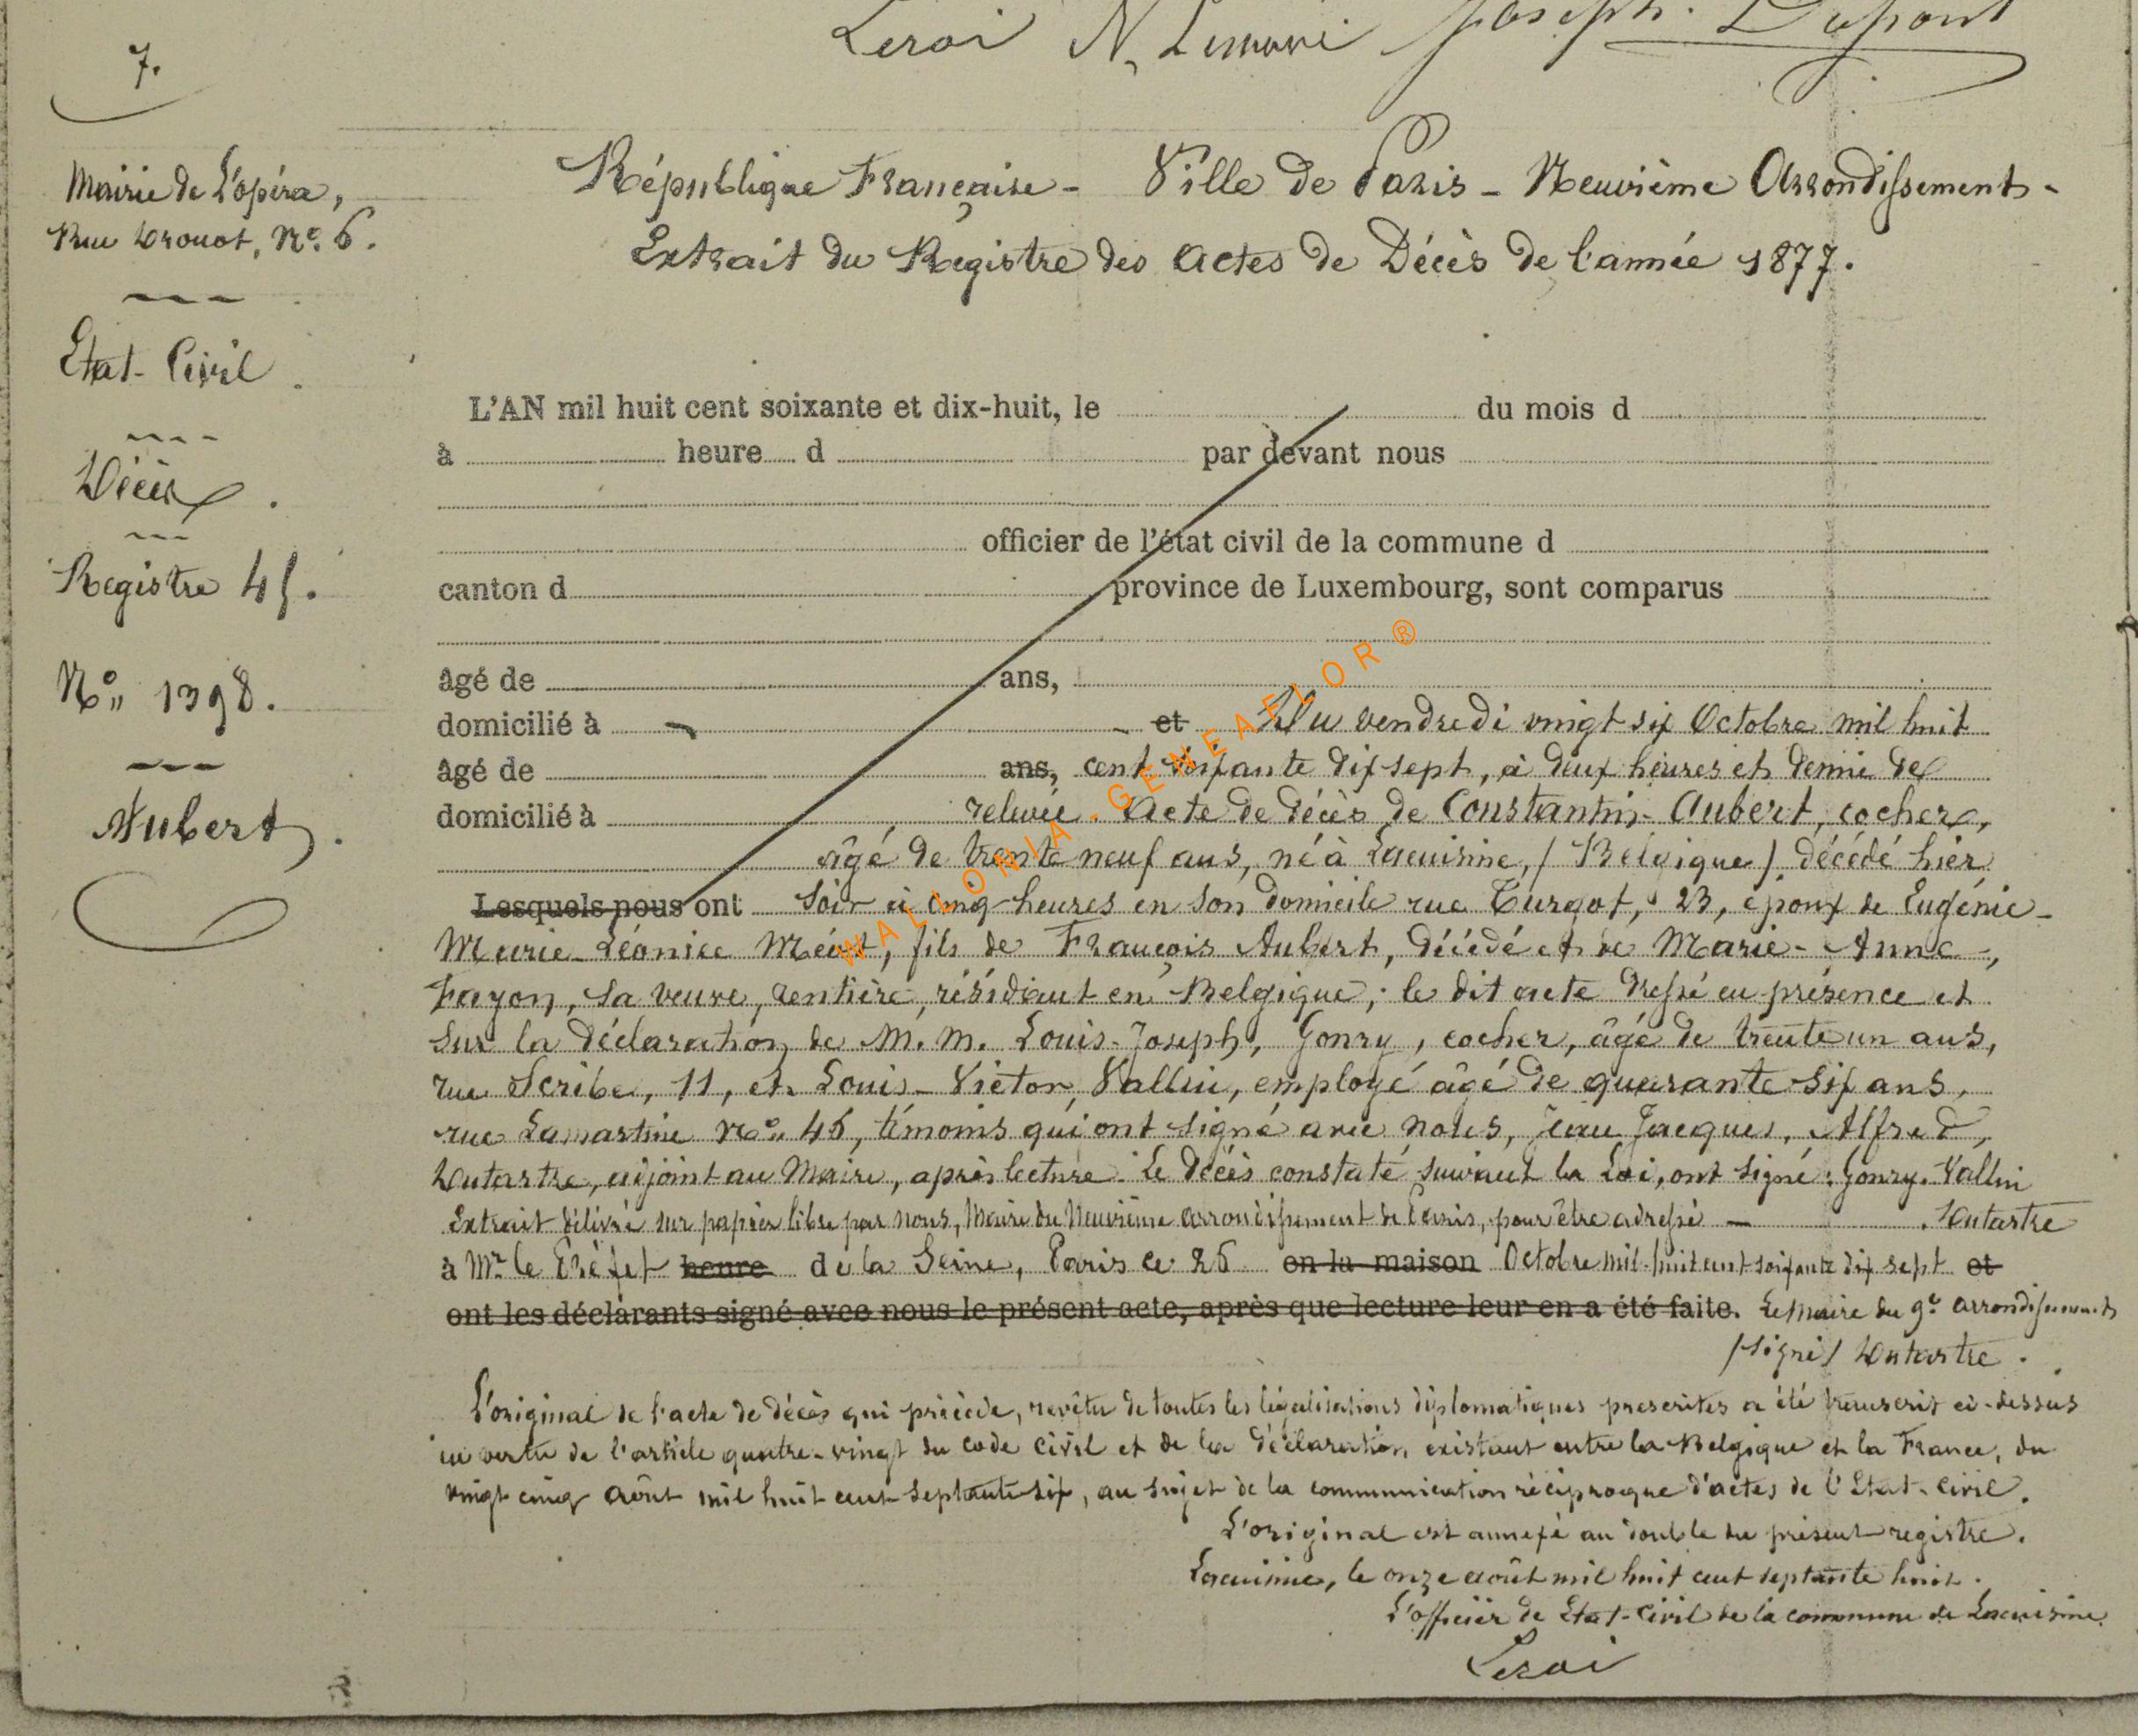 Leroi N. Lemaire Joseph. Dupont
7.
Mairie de L'opéra,
Rue Drouot, No. 6.
Etat-Civil
Décès.
Registre 45.
No. 1398.
Aubert.
République Française - Ville de Paris - Neuvième Arrondissement -
Extrait du Registre des Actes de Décès de l'année 1877.
L'AN mil huit cent soixante et dix-huit, le du mois d
à heure d par devant nous
officier de l'état civil de la commune d
canton d province de Luxembourg, sont comparus
âgé de ans,
domicilié à et Du vendredi vingt six Octobre mil huit
âgé de ans, cent soixante dix sept, à deux heures et demie de
domicilié à relevée. Acte de décès de Constantin Aubert, cocher,
âgé de trente neuf ans, né à Lacuisine, / Belgique / décédé hier
Lesquels nous ont soir à cinq heures en son domicile rue Turgot, 23, époux de Eugénie-
Marie-Léonice, fils de François Aubert, décédé et de Marie-Anne,
Fayon, sa veuve, rentière, résidant en Belgique; le dit acte dressé en présence et
sur la déclaration de M. M. Louis-Joseph, Gonry, cocher, âgé de trente un ans,
rue Scribe, 11, et Louis-Victor, Vallin, employé âgé de quarante six ans,
rue Lamartine No. 46, témoins qui ont signé avec nous, Jean Jacques, Alfred,
Dutartre, adjoint au Maire, après lecture. Le décès constaté suivant la Loi, ont signé: Gonry. Vallin
Extrait délivré sur papier libre par nous, Maire du Neuvième arrondissement de Paris, pour être adressé - . Dutartre
à Mr. le Préfet heure de la Seine, Paris ce 26 en la maison Octobre mil huit cent soixante dix sept et
ont les déclarants signé avec nous le présent acte, après que lecture leur en a été faite. Le Maire du 9e. arrondissement
/signé/ Dutartre.
L'original de l'acte de décès qui précède, revêtu de toutes les légalisations diplomatiques prescrites a été transcrit ci-dessus
en vertu de l'article quatre-vingt du code civil et de la déclaration, existant entre la Belgique et la France, du
vingt cinq août mil huit cent septante six, au sujet de la communication réciproque d'actes de l'Etat-civil.
L'original est annexé au double du présent registre.
Lacuisine, le onze août mil huit cent septante huit.
L'officier de Etat-Civil de la commune de Lacuisine
Leroi
WALLONIA.GENEAFLOR®